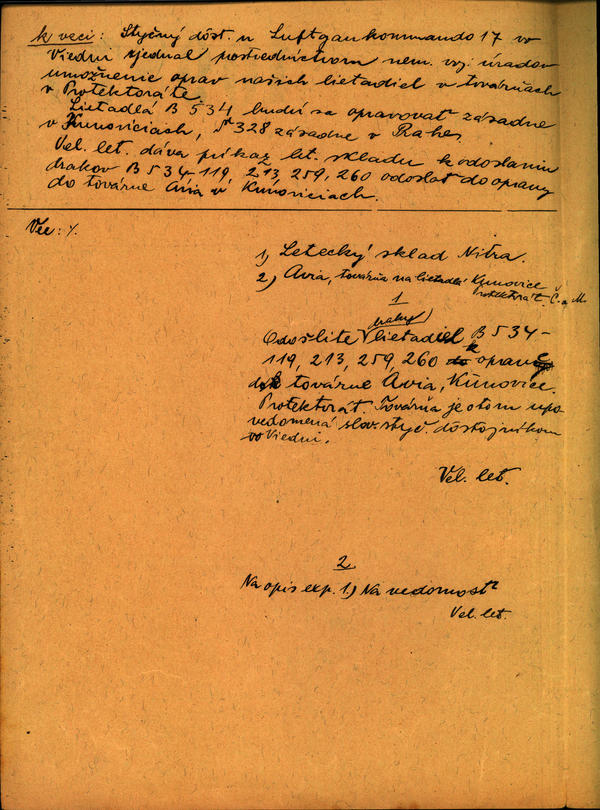 k veci: Styčný dôst. u Luftgaukommando 17 vo
Viedni zjednal postredníctvom nem. voj. úradov
umožnenie opráv našich lietadiel v továrňach
v Protektoráte.
Lietadlá B 534 budú sa opravovať zásadne
v Kunoviciach, Š 328 zásadne v Prahe.
Vel. let. dáva príkaz let. skladu k odoslaniu
drakov B 534-119, 213, 259, 260 odoslať do opravy
do továrne Avia v Kunoviciach.
Vec: ./.
1) Letecký sklad Nitra.
2) Avia, továrňa na lietadlá Kunovice
Protektorát Č. a M.
1
draky
Odošlite lietadiel B 534-
119, 213, 259, 260 k oprave
do továrne Avia, Kunovice.
Protektorát. Továrňa je o tom upo
vedomená slov. styč. dôstojníkom
vo Viedni.
Vel. let.
2
Na opis exp. 1.) Na vedomosť
Vel. let.